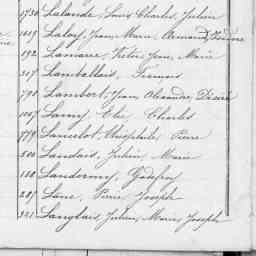 1730 Lalande, Louis Charles, Julien
1619 Laloy, Jean Marie, Armand, Théodore
192 Lamarre, Victor Jean, Marie
317 Lamballais, François
790 Lambert, Jean Alexandre, Désiré
1067 Lamy, Elie, Charles
779 Lancelot, Théophile, Pierre
500 Landais, Julien, Marie
100 Landormy, Godefroy
287 Lane, Pierre, Joseph
521 Langlais, Julien, Marie, Joseph